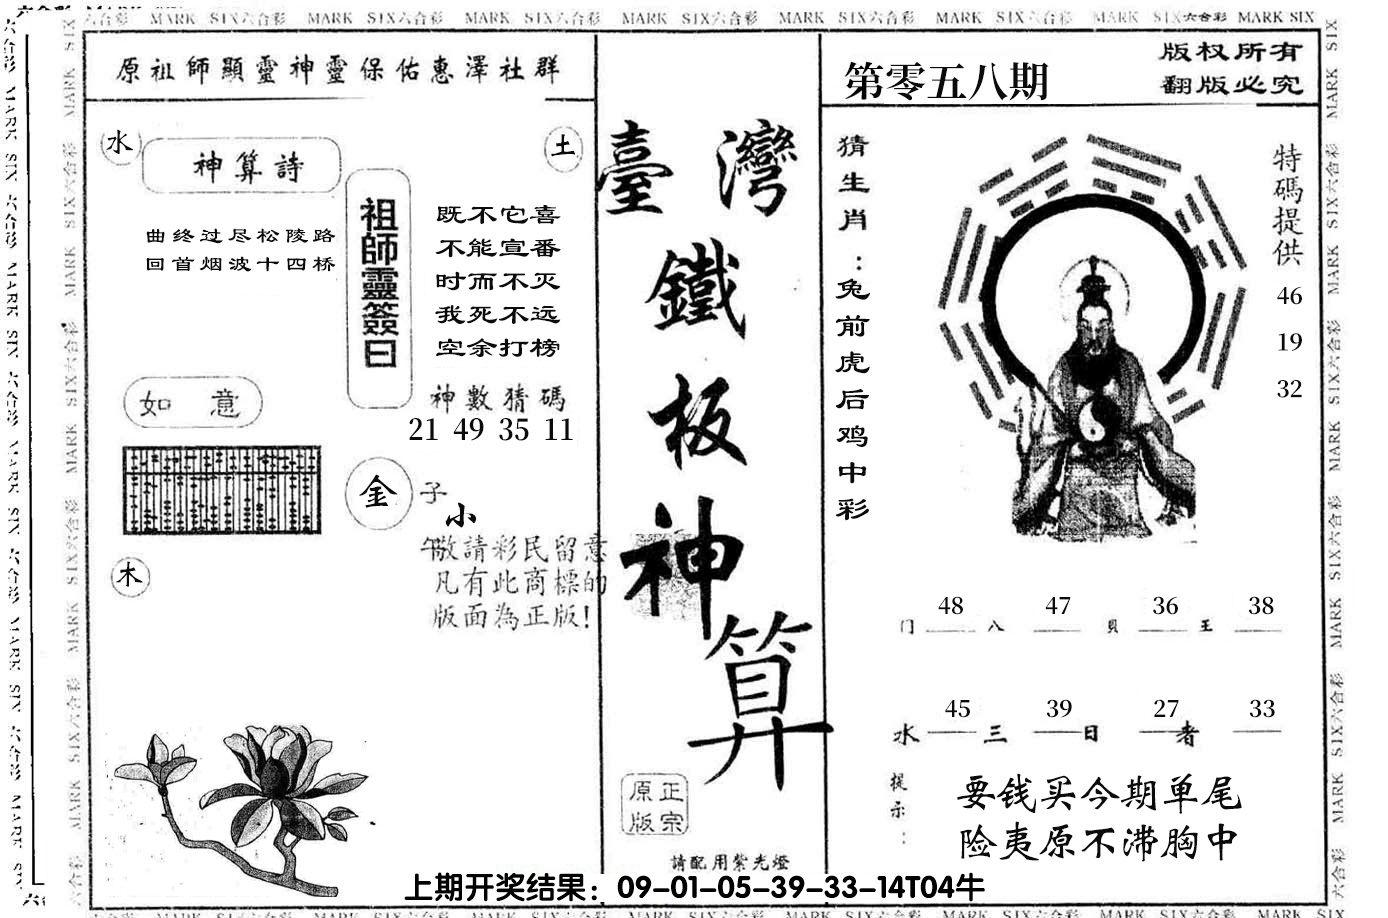 MARK SIX六合彩 MARK SIX六合彩 MARK SIX六合彩 MARK SIX六合彩 MARK SIX六合彩 MARK SIX六合彩 MARK SIX六合彩 MARK SIX
原祖師顯靈神靈保佑惠澤社群
水
神算詩
土
曲终过尽松陵路
回首烟波十四桥
祖師靈簽曰
既不它喜
不能宣番
时而不灭
我死不远
空余打榜
神數猜碼
21 49 35 11
如 意
金
子
小
午
敬請彩民留意
凡有此商標的
版面為正版!
木
臺灣
鐵
板
神
算
正宗
原版
請配用紫光燈
第零五八期
版权所有
翻版必究
猜生肖:兔前虎后鸡中彩
特碼提供
46
19
32
48 47 36 38
门 八 貝 王
45 39 27 33
水 三 日 者
提示:
要钱买今期单尾
险夷原不滞胸中
上期开奖结果：09-01-05-39-33-14T04牛